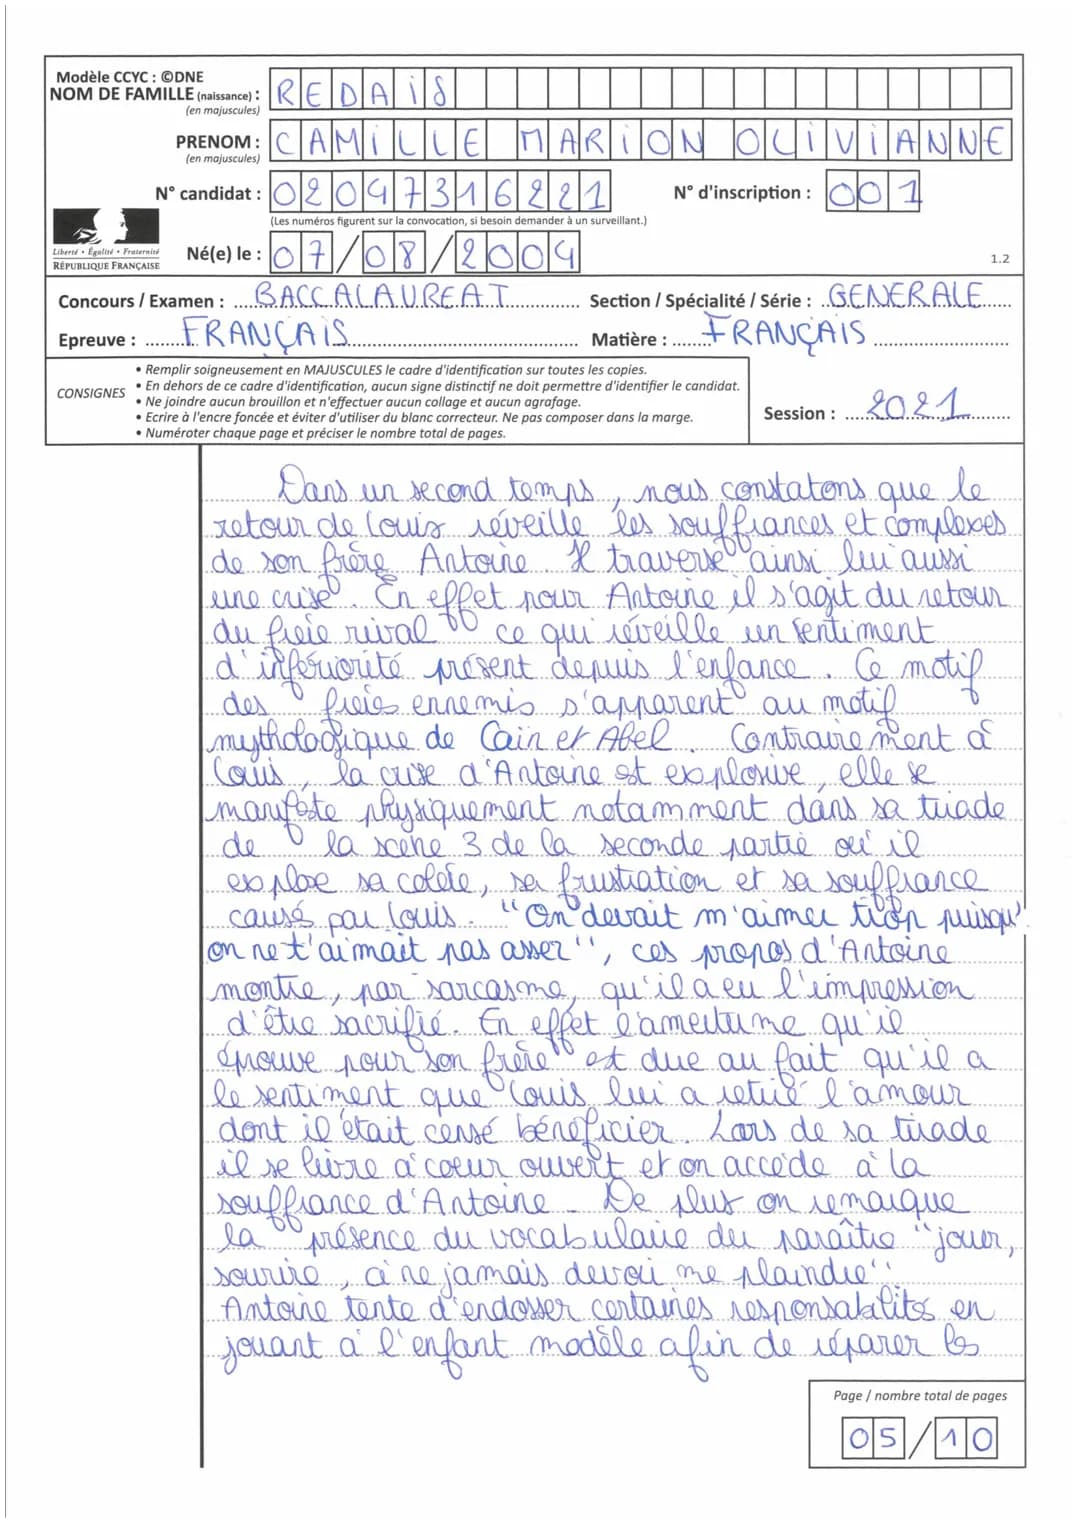 Modèle CCYC : ©DNE
NOM DE FAMILLE (naissance) : REDAiS
(en majuscules)
PRENOM : CAMiLLE MARiON OLiViANNE
(en majuscules)
N° candidat : 02047316221 N° d'inscription : 001
(Les numéros figurent sur la convocation, si besoin demander à un surveillant.)
Liberté • Égalité • Fraternité
RÉPUBLIQUE FRANÇAISE
Né(e) le : 07/08/2004
1.2
Concours / Examen : BACCALAUREAT Section / Spécialité / Série : GENERALE
Epreuve : FRANÇAIS Matière : FRANÇAIS
CONSIGNES
• Remplir soigneusement en MAJUSCULES le cadre d'identification sur toutes les copies.
• En dehors de ce cadre d'identification, aucun signe distinctif ne doit permettre d'identifier le candidat.
• Ne joindre aucun brouillon et n'effectuer aucun collage et aucun agrafage.
• Ecrire à l'encre foncée et éviter d'utiliser du blanc correcteur. Ne pas composer dans la marge.
• Numéroter chaque page et préciser le nombre total de pages.
Session : 2021
Dans un second temps, nous constatons que le
retour de Louis réveille les souffrances et complexes
de son frère Antoine. Il traverse ainsi lui aussi
une crise. En effet pour Antoine il s'agit du retour
du frère rival ce qui réveille un sentiment
d'infériorité présent depuis l'enfance. Ce motif
des frères ennemis s'apparent au motif
mythologique de Cain et Abel. Contrairement à
Louis, la crise d'Antoine est explosive, elle se
manifeste physiquement notamment dans sa tirade
de la scène 3 de la seconde partie où il
explose sa colère, sa frustration et sa souffrance
causé par Louis. "On devait m'aimer trop puisqu'
on ne t'aimait pas asser", ces propos d'Antoine
montre, par sarcasme, qu'il a eu l'impression
d'être sacrifié. En effet l'amertume qu'il
épouve pour son frère est due au fait qu'il a
le sentiment que Louis lui a retiré l'amour
dont il était censé bénéficier. Lors de sa tirade
il se livre à coeur ouvert et on accède à la
souffrance d'Antoine. De plus on remarque
la présence du vocabulaire du paraître "jouer,
sourire, à ne jamais devoir me plaindre".
Antoine tente d'endosser certaines responsabilités en
jouant à l'enfant modèle afin de réparer les
Page / nombre total de pages
05/10